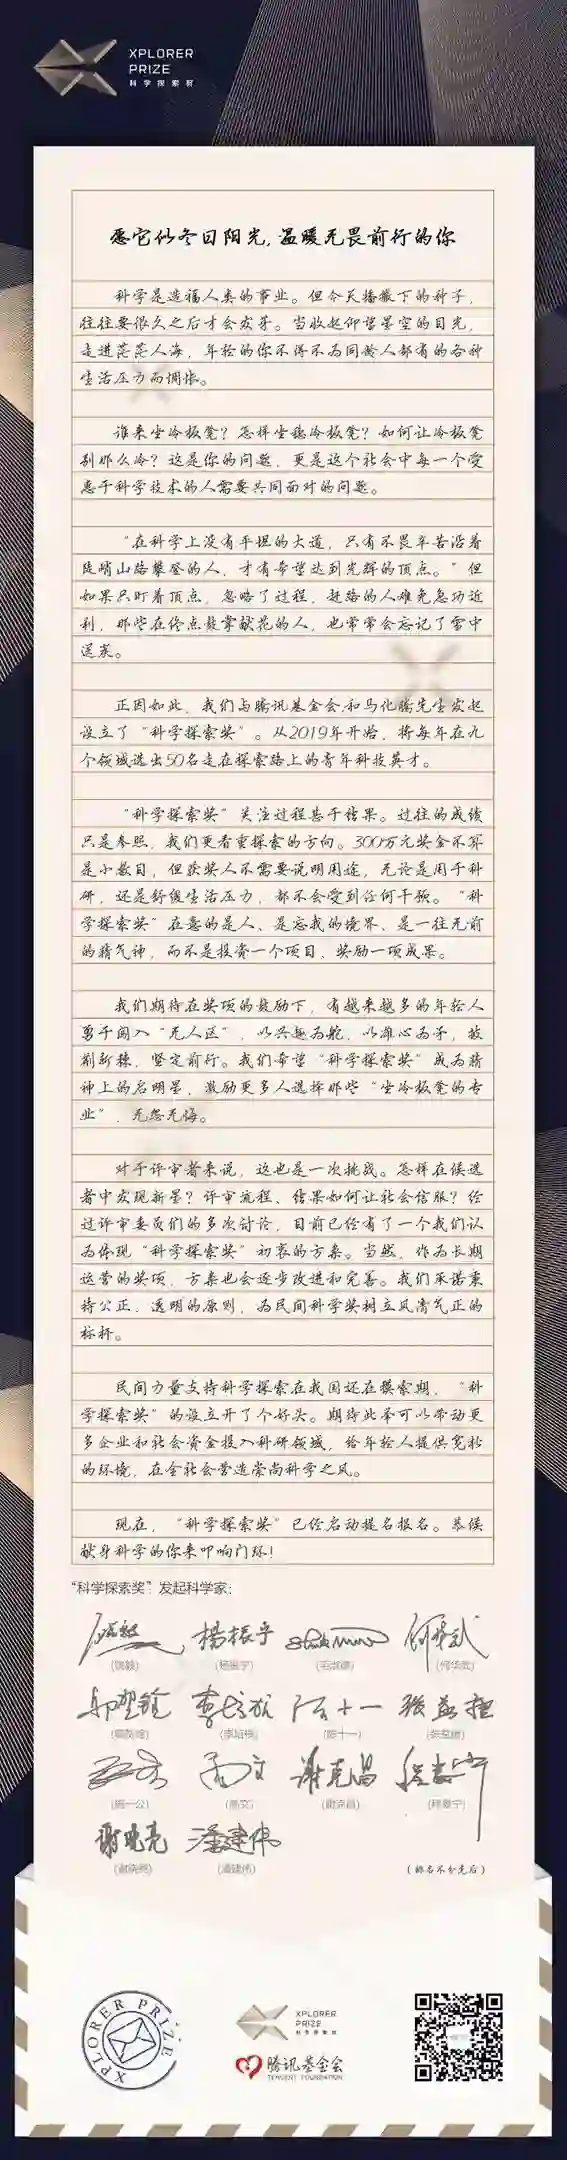 XPLORER
PRIZE
科学探索奖
愿它似冬日阳光,温暖无畏前行的你
科学是造福人类的事业。但今天播撒下的种子,
往往要很久之后才会发芽。当收起仰望星空的目光,
走进茫茫人海,年轻的你不得不为同龄人都有的各种
生活压力而惆怅。
谁来坐冷板凳?怎样坐稳冷板凳?如何让冷板凳
别那么冷?这是你的问题,更是这个社会中每一个受
惠于科学技术的人需要共同面对的问题。
“在科学上没有平坦的大道,只有不畏辛苦沿着
陡峭山路攀登的人,才有希望达到光辉的顶点。”但
如果只盯着顶点,忽略了过程,赶路的人难免急功近
利,那些在终点鼓掌献花的人,也常常会忘记了雪中
送炭。
正因如此,我们与腾讯基金会和马化腾先生发起
设立了“科学探索奖”。从2019年开始,将每年在九
个领域选出50名走在探索路上的青年科技英才。
“科学探索奖”关注过程甚于结果。过往的成绩
只是参照,我们更看重探索的方向。300万元奖金不算
是小数目,但获奖人不需要说明用途,无论是用于科
研,还是舒缓生活压力,都不会受到任何干预。“科
学探索奖”在意的是人、是忘我的境界、是一往无前
的精气神,而不是投资一个项目、奖励一项成果。
我们期待在奖项的鼓励下,有越来越多的年轻人
勇于闯入“无人区”,以兴趣为舵,以雄心为矛,披
荆斩棘,坚定前行。我们希望“科学探索奖”成为精
神上的启明星,激励更多人选择那些“坐冷板凳的专
业”,无怨无悔。
对于评审者来说,这也是一次挑战。怎样在候选
者中发现新星?评审流程、结果如何让社会信服?经
过评审委员们的多次讨论,目前已经有了一个我们认
为体现“科学探索奖”初衷的方案。当然,作为长期
运营的奖项,方案也会逐步改进和完善。我们承诺秉
持公正、透明的原则,为民间科学奖树立风清气正的
标杆。
民间力量支持科学探索在我国还在摸索期,“科
学探索奖”的设立开了个好头。期待此举可以带动更
多企业和社会资金投入科研领域,给年轻人提供宽松
的环境,在全社会营造崇尚科学之风。
现在,“科学探索奖”已经启动提名报名。恭候
献身科学的你来叩响门环!
“科学探索奖”发起科学家:
饶毅 楊振宁 何华武
(饶毅) (杨振宁) (毛淑德) (何华武)
邬贺铨 李培根 陈十一 张益唐
(邬贺铨) (李培根) (陈十一) (张益唐)
高文 谢克昌 程泰宁
(施一公) (高文) (谢克昌) (程泰宁)
谢晓亮 潘建伟
(谢晓亮) (潘建伟) (排名不分先后)
XPLORER PRIZE
XPLORER
PRIZE
科学探索奖
腾讯基金会
TENCENT FOUNDATION